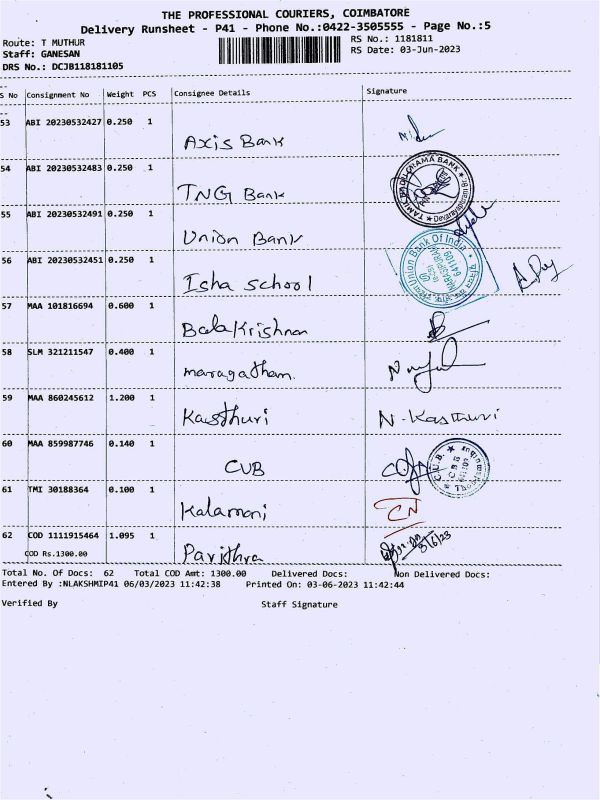 THE PROFESSIONAL COURIERS, COIMBATORE
Delivery Runsheet - P41 - Phone No.:0422-3505555 - Page No.:5
Route: T MUTHUR
RS No.: 1181811
Staff: GANESAN
RS Date: 03-Jun-2023
DRS No.: DCJB118181105
S No Consignment No Weight PCS Consignee Details Signature
53 ABI 20230532427 0.250 1
Axis Bank
54 ABI 20230532483 0.250 1
TNG Bank
55 ABI 20230532491 0.250 1
Union Bank
56 ABI 20230532451 0.250 1
Isha School
57 MAA 101816694 0.600 1
Balakrishnan
58 SLM 321211547 0.400 1
maragatham.
59 MAA 860245612 1.200 1
Kasthuri N-Kasthuri
60 MAA 859987746 0.140 1
CUB
61 TMI 30188364 0.100 1
Kalamani CN
62 COD 1111915464 1.095 1
COD Rs.1300.00 Pavithra 3/6/23
Total No. Of Docs: 62 Total COD Amt: 1300.00 Delivered Docs: Non Delivered Docs:
Entered By :NLAKSHMIP41 06/03/2023 11:42:38 Printed On: 03-06-2023 11:42:44
Verified By Staff Signature
Union Bank Of India
641109
C.U.B.